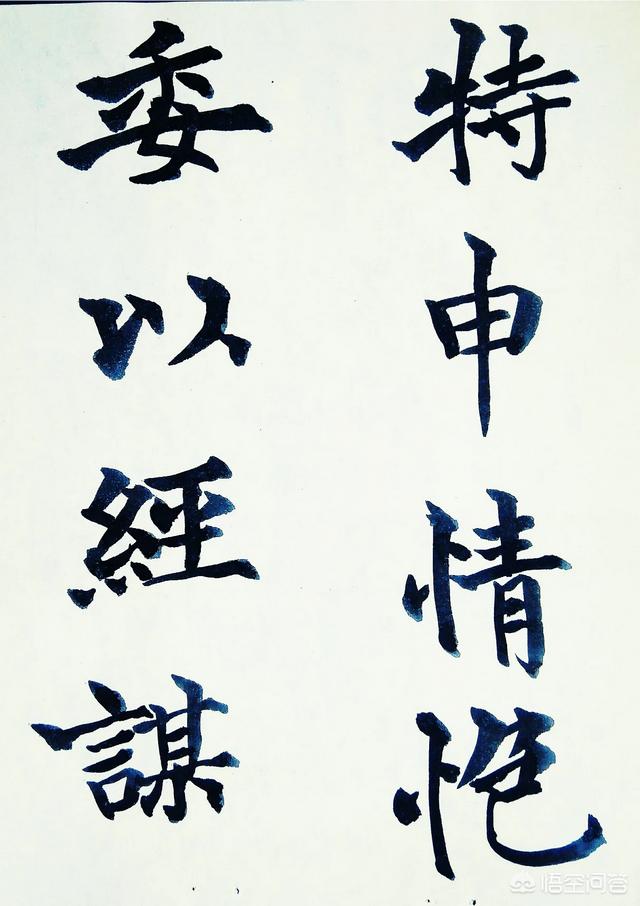 特申情
委以經謀
悟空问答